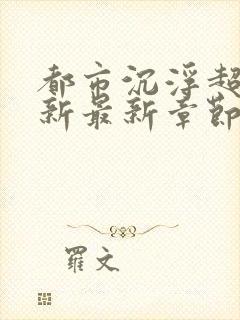 都市沉浮超
新最新章節
羅文